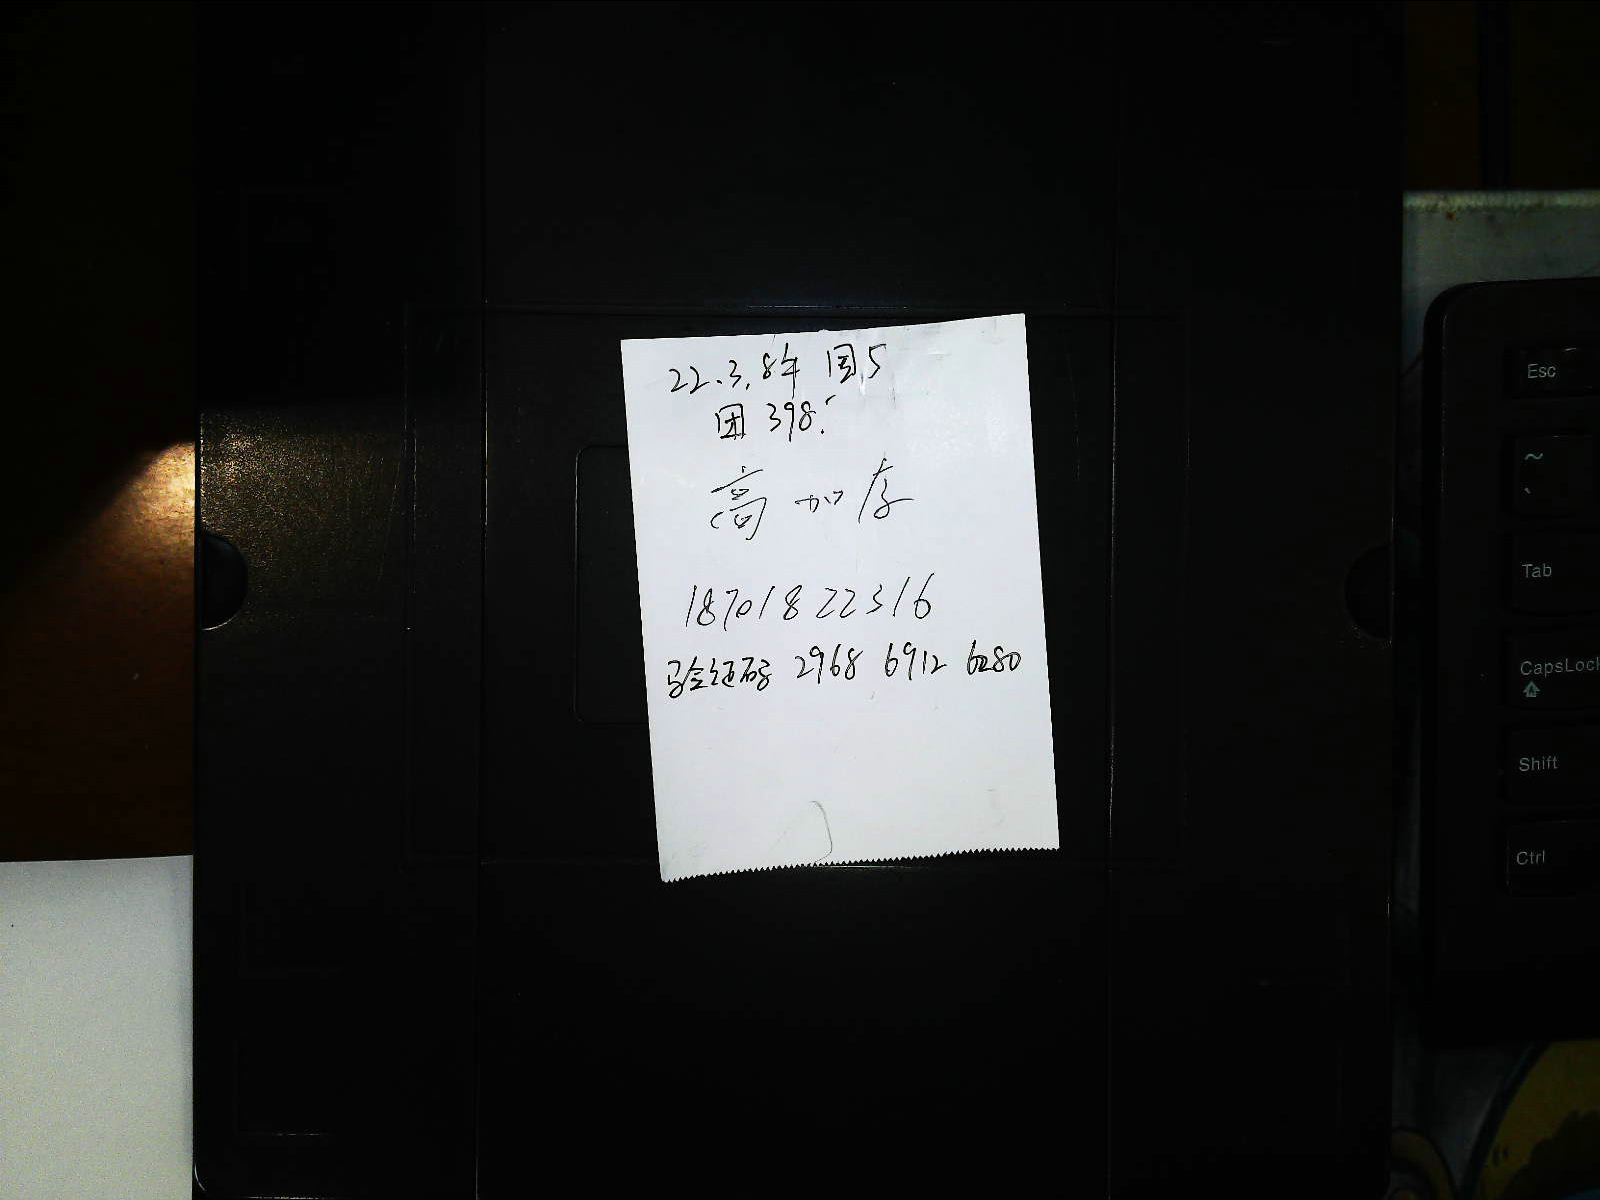 22.3.8年 国5
团 398.
高加存
18701822316
验证码 2968 6912 6280
Esc
~
`
Tab
CapsLock
Shift
Ctrl